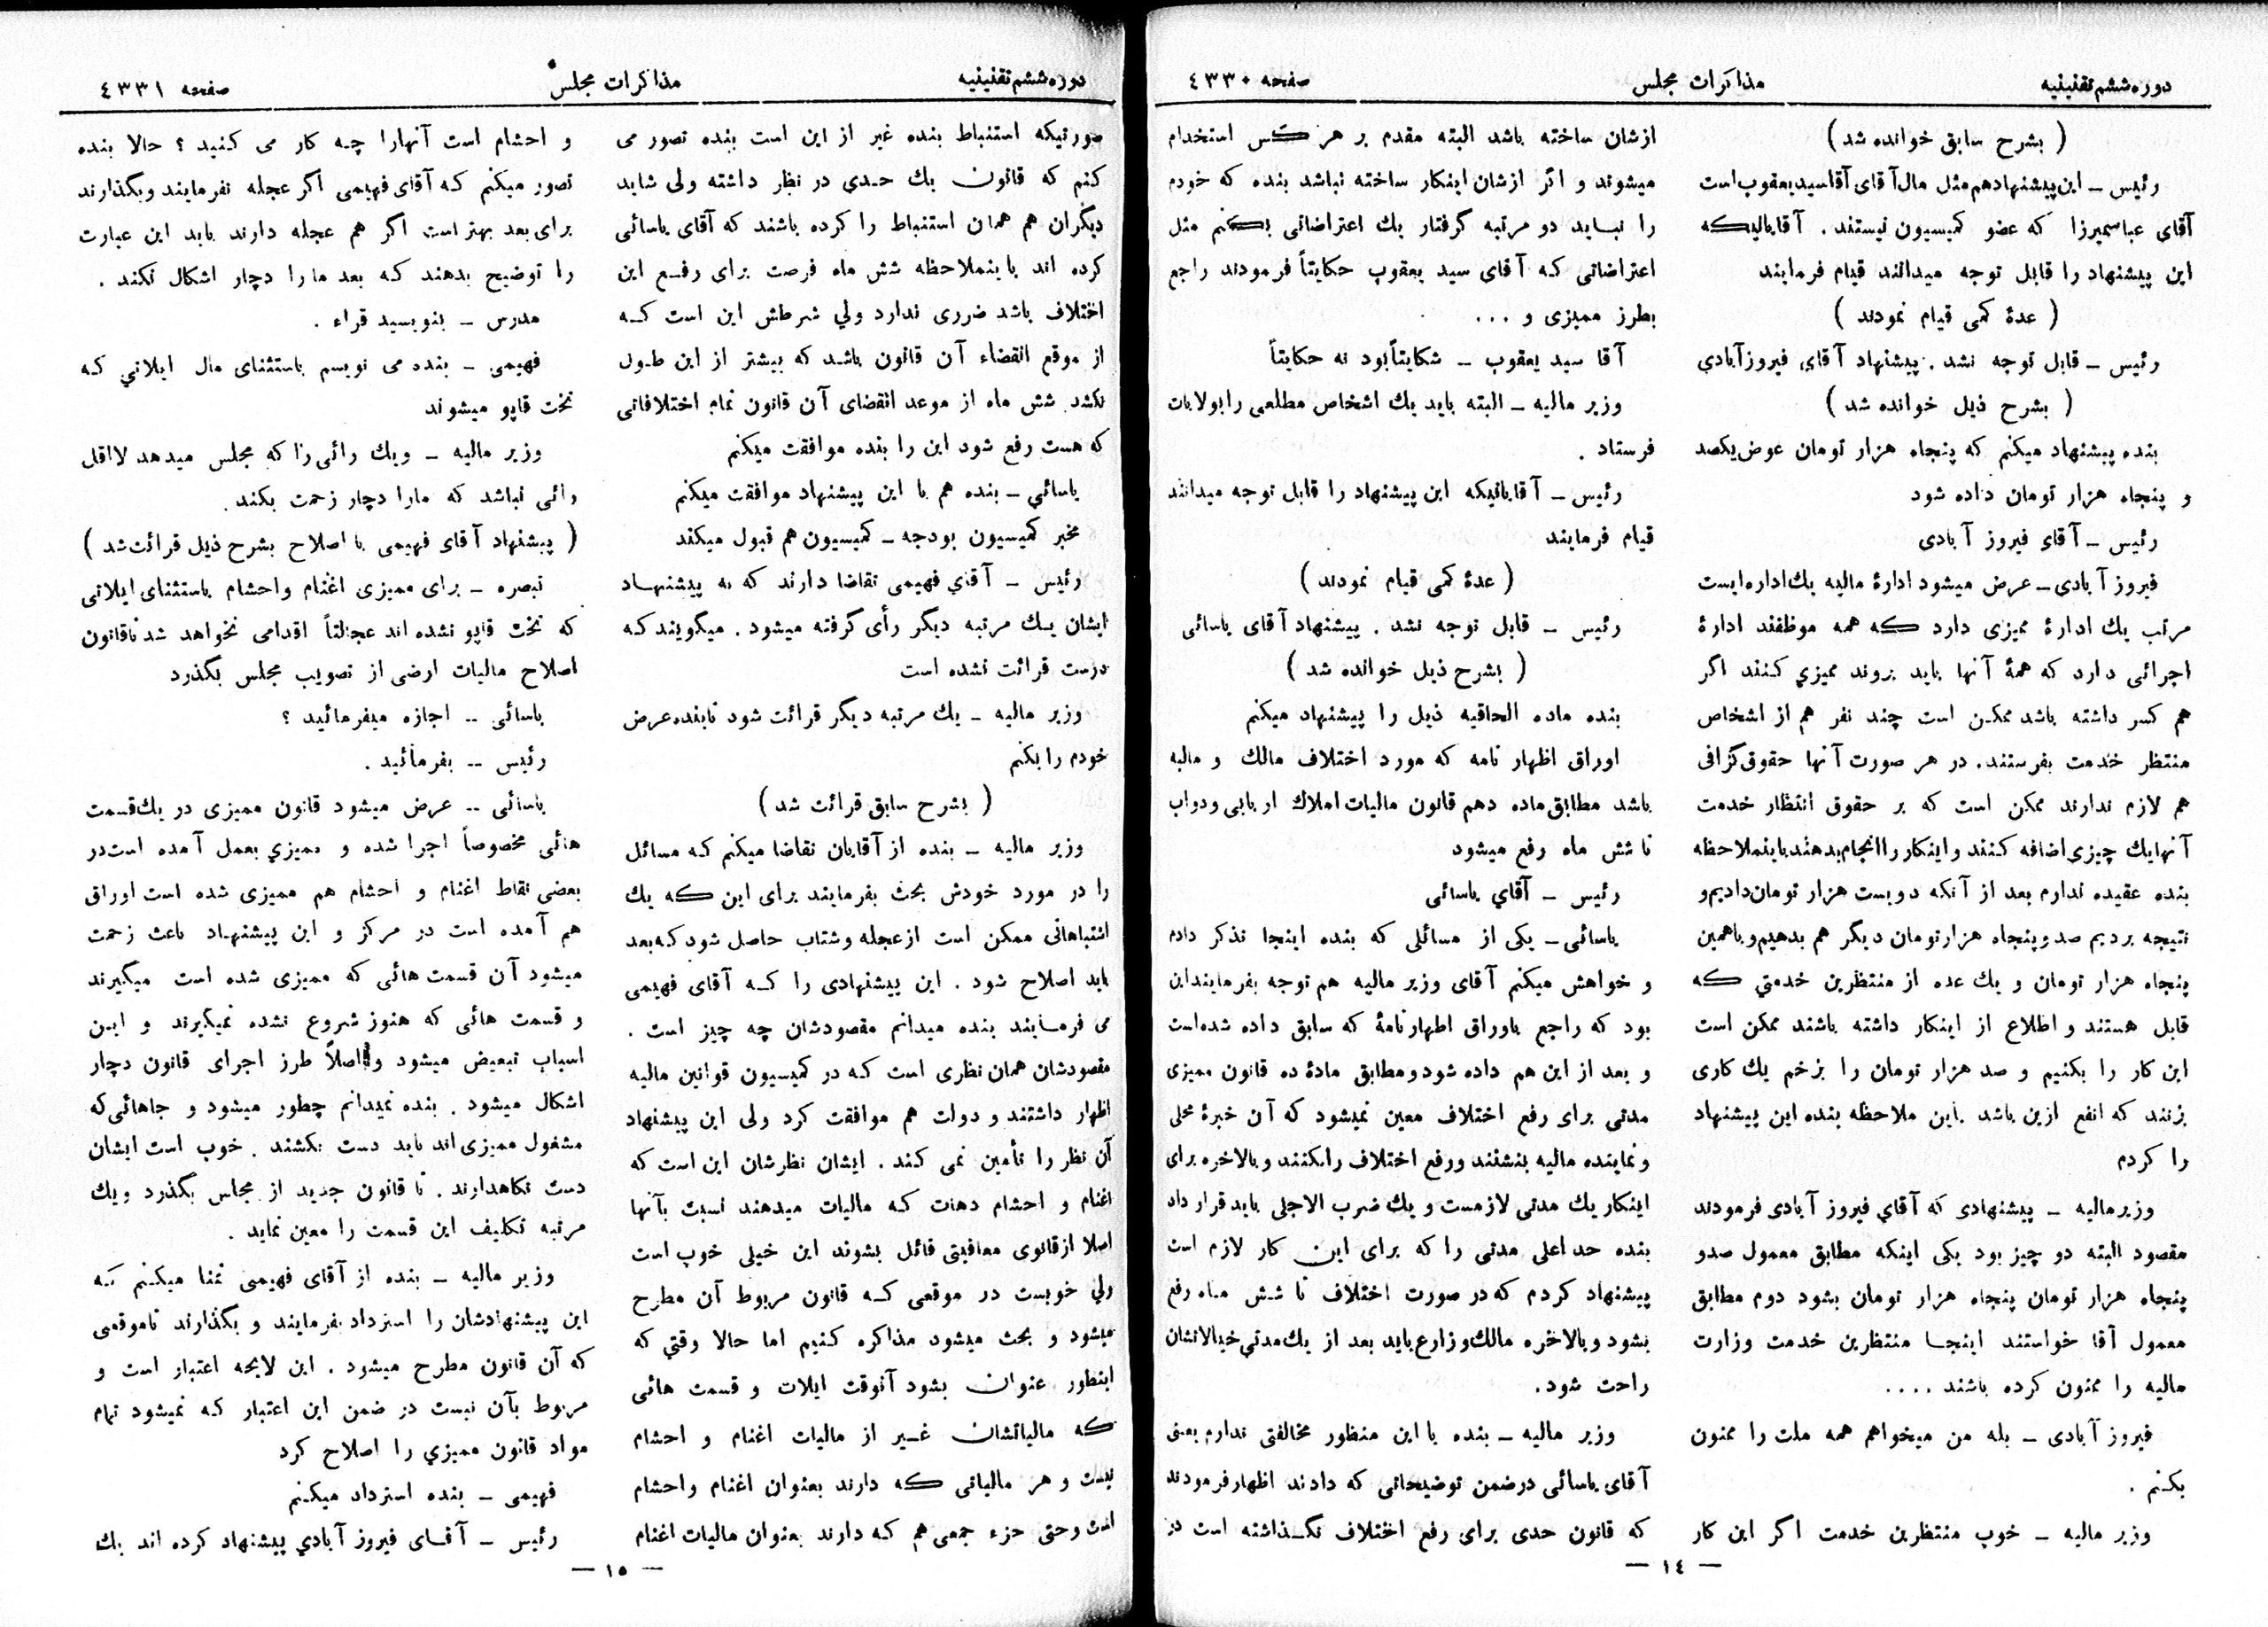 دوره ششم تقنینیه
مذاکرات مجلس
صفحه ٤٣٣٠
( بشرح سابق خوانده شد )
رئیس ــ این پیشنهاد هم مثل مال آقای آقا سید یعقوب است
آقای عباسمیرزا که عضو کمیسیون نیستند . آقایانیکه
این پیشنهاد را قابل توجه میدانند قیام فرمایند
( عدۀ کمی قیام نمودند )
رئیس ــ قابل توجه نشد . پیشنهاد آقای فیروزآبادی
( بشرح ذیل خوانده شد )
بنده پیشنهاد میکنم که پنجاه هزار تومان عوض یکصد
و پنجاه هزار تومان داده شود
رئیس ــ آقای فیروز آبادی
فیروز آبادی ــ عرض میشود ادارۀ مالیه یك اداره ایست
مرتب یك ادارۀ ممیزی دارد که همه موظفند ادارۀ
اجرائی دارد که همۀ آنها باید بروند ممیزي کنند اگر
هم کسر داشته باشد ممکن است چند نفر هم از اشخاص
منتظر خدمت بفرستند . در هر صورت آنها حقوق گزافی
هم لازم ندارند ممکن است که بر حقوق انتظار خدمت
آنها یك چیزی اضافه کنند و اینکار را انجام بدهند باینملاحظه
بنده عقیده ندارم بعد از آنکه دویست هزار تومان دادیم و
نتیجه بردیم صد و پنجاه هزار تومان دیگر هم بدهیم و با همین
پنجاه هزار تومان و یك عده از منتظرین خدمتي که
قابل هستند و اطلاع از اینکار داشته باشند ممکن است
این کار را بکنیم و صد هزار تومان را بزخم یك کاری
بزنند که انفع ازین باشد باین ملاحظه بنده این پیشنهاد
را کردم
وزیر مالیه ــ پیشنهادی که آقاي فیروز آبادی فرمودند
مقصود البته دو چیز بود یکی اینکه مطابق معمول صدو
پنجاه هزار تومان پنجاه هزار تومان بشود دوم مطابق
معمول آقا خواستند اینجا منتظرین خدمت وزارت
مالیه را ممنون کرده باشند ....
فیروز آبادی ــ بله من میخواهم همه ملت را ممنون
بکنم .
وزیر مالیه ــ خوب منتظرین خدمت اگر این کار
ازشان ساخته باشد البته مقدم بر هر کس استخدام
میشوند و اگر ازشان اینکار ساخته نباشد بنده که خودم
را نباید دو مرتبه گرفتار یك اعتراضاتی بکنم مثل
اعتراضاتی که آقای سید یعقوب حکایتاً فرمودند راجع
بطرز ممیزی و ...
آقا سید یعقوب ــ شکایتاً بود نه حکایتاً
وزیر مالیه ــ البته باید یك اشخاص مطلعی را بولایات
فرستاد .
رئیس ــ آقایانیکه این پیشنهاد را قابل توجه میدانند
قیام فرمایند
( عدۀ کمی قیام نمودند )
رئیس ــ قابل توجه نشد . پیشنهاد آقای یاسائی
( بشرح ذیل خوانده شد )
بنده ماده الحاقیه ذیل را پیشنهاد میکنم
اوراق اظهار نامه که مورد اختلاف مالك و مالیه
باشد مطابق ماده دهم قانون مالیات املاك اربابی و دواب
تا شش ماه رفع میشود
رئیس ــ آقاي یاسائی
یاسائی ــ یکی از مسائلی که بنده اینجا تذکر دادم
و خواهش میکنم آقای وزیر مالیه هم توجه بفرمایند این
بود که راجع باوراق اظهارنامۀ که سابق داده شده است
و بعد از این هم داده شود و مطابق مادۀ ده قانون ممیزی
مدتی برای رفع اختلاف معین نمیشود که آن خبرۀ محلی
و نماینده مالیه بنشینند و رفع اختلاف را بکنند و بالاخره برای
اینکار یك مدتی لازمست و یك ضرب الاجلی باید قرار داد
بنده حد اعلی مدتی را که برای این کار لازم است
پیشنهاد کردم که در صورت اختلاف تا شش ماه رفع
بشود و بالاخره مالك و زارع باید بعد از یك مدتي خیالاتشان
راحت شود.
وزیر مالیه ــ بنده با این منظور مخالفتی ندارم یعنی
آقای یاسائی در ضمن توضیحاتی که دادند اظهار فرمودند
که قانون حدی برای رفع اختلاف نگذاشته است در
— ١٤ —
دوره ششم تقنینیه
مذاکرات مجلس
صفحه ٤٣٣١
صورتیکه استنباط بنده غیر از این است بنده تصور می
کنم که قانون یك حدی در نظر داشته ولی شاید
دیگران هم همان استنباط را کرده باشند که آقای یاسائی
کرده اند باینملاحظه شش ماه فرصت برای رفع این
اختلاف باشد ضرری ندارد ولي شرطش این است که
از موقع انقضاء آن قانون باشد که بیشتر از این طول
نکشد شش ماه از موعد انقضای آن قانون تمام اختلافاتی
که هست رفع شود این را بنده موافقت میکنم
یاسائي ــ بنده هم با این پیشنهاد موافقت میکنم
مخبر کمیسیون بودجه ــ کمیسیون هم قبول میکند
رئیس ــ آقاي فهیمی تقاضا دارند که به پیشنهاد
ایشان یك مرتبه دیگر رأی گرفته میشود . میگویند که
درست قرائت نشده است
وزیر مالیه ــ یك مرتبه دیگر قرائت شود تا بنده عرض
خودم را بکنم
( بشرح سابق قرائت شد )
وزیر مالیه ــ بنده از آقایان تقاضا میکنم که مسائل
را در مورد خودش بحث بفرمایند برای این که یك
اشتباهاتی ممکن است از عجله و شتاب حاصل شود که بعد
باید اصلاح شود . این پیشنهادی را که آقای فهیمی
می فرمایند بنده میدانم مقصودشان چه چیز است .
مقصودشان همان نظری است که در کمیسیون قوانین مالیه
اظهار داشتند و دولت هم موافقت کرد ولی این پیشنهاد
آن نظر را تأمین نمی کند . ایشان نظرشان این است که
اغنام و احشام دهات که مالیات میدهند نسبت بآنها
اصلا از قانوی معافیتی قائل بشوند این خیلی خوب است
ولي خوبست در موقعی که قانون مربوط آن مطرح
میشود و بحث میشود مذاکره کنیم اما حالا وقتي که
اینطور عنوان بشود آنوقت ایلات و قسمت هائی
که مالیاتشان غیر از مالیات اغنام و احشام
نیست و هر مالیاتی که دارند بعنوان اغنام و احشام
است و حتی جزء جمعی هم که دارند بعنوان مالیات اغنام
و احشام است آنهارا چه کار می کنید ؟ حالا بنده
تصور میکنم که آقای فهیمی اگر عجله نفرمایند و بگذارند
برای بعد بهتر است اگر هم عجله دارند باید این عبارت
را توضیح بدهند که بعد ما را دچار اشکال نکند .
مدرس ــ بنویسید قراء .
فهیمی ــ بنده می نویسم باستثنای مال ایلاتي که
تخت قاپو میشوند
وزیر مالیه ــ ویك رائی را که مجلس میدهد لااقل
رائی نباشد که مارا دچار زحمت بکند .
( پیشنهاد آقای فهیمی با اصلاح بشرح ذیل قرائت شد )
تبصره ــ برای ممیزی اغنام و احشام باستثنای ایلاتی
که تخت قاپو نشده اند عجالتاً اقدامی نخواهد شد تا قانون
اصلاح مالیات ارضی از تصویب مجلس بگذرد
یاسائی ــ اجازه میفرمائید ؟
رئیس ــ بفرمائید .
یاسائی ــ عرض میشود قانون ممیزی در یك قسمت
هائی مخصوصاً اجرا شده و ممیزي بعمل آمده است در
بعضی نقاط اغنام و احشام هم ممیزی شده است اوراق
هم آمده است در مرکز و این پیشنهاد باعث زحمت
میشود آن قسمت هائی که ممیزی شده است میگیرند
و قسمت هائی که هنوز شروع نشده نمیگیرند و این
اسباب تبعیض میشود و اصلاً طرز اجرای قانون دچار
اشکال میشود . بنده نمیدانم چطور میشود و جاهائی که
مشغول ممیزی اند باید دست بکشند . خوب است ایشان
دست نگاهدارند . تا قانون جدید از مجلس بگذرد ویك
مرتبه تکلیف این قسمت را معین نماید .
وزیر مالیه ــ بنده از آقای فهیمی تمنا میکنم که
این پیشنهادشان را استرداد بفرمایند و بگذارند تا موقعی
که آن قانون مطرح میشود . این لایحه اعتبار است و
مربوط بآن نیست در ضمن این اعتبار که نمیشود تمام
مواد قانون ممیزي را اصلاح کرد
فهیمی ــ بنده استرداد میکنم
رئیس ــ آقای فیروز آبادي پیشنهاد کرده اند یك
— ١٥ —